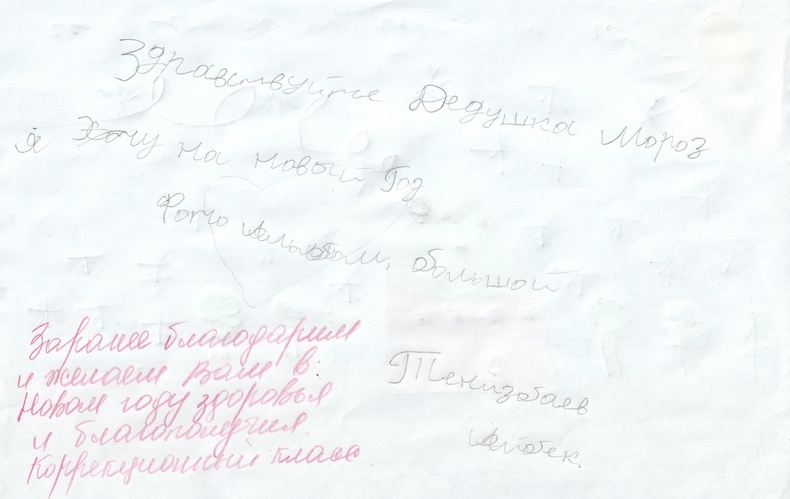 Здравствуйте Дедушка Мороз
я Хочу на новый Год
Фото Альбом, большой
Тенизбаев
Айбек.
Заранее благодарим
и желаем Вам в
Новом году здоровья
и благополучия.
Коррекционный класс